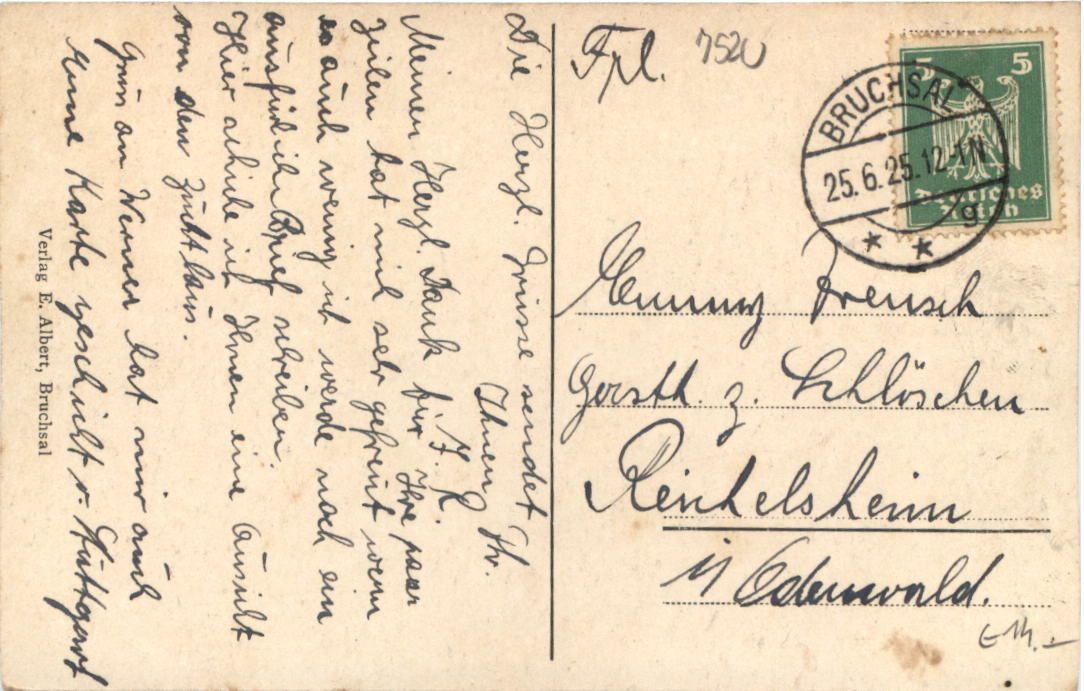 Die Herzl. Grüsse sendet
Ihnen Ihr.
J. R.
Meinen Herzl. Dank für Ihre paar
Zeilen hat mich sehr gefreut wenn
es auch wenig ich werde noch ein
ausfürl. Brief schreiben.
Hier schicke ich Ihnen eine Ansicht
von dem Zuchthaus.
Gruss an Werner hat mir auch
eine Karte geschickt v. Stuttgart
Verlag E. Albert, Bruchsal
Frl.
7520
5 5
Deutsches
Reich
BRUCHSAL
25.6.25.12-1N
* * g
Emmy Trensch
Gasth. z. Schlöschen
Reichelsheim
i/ Odenwald.